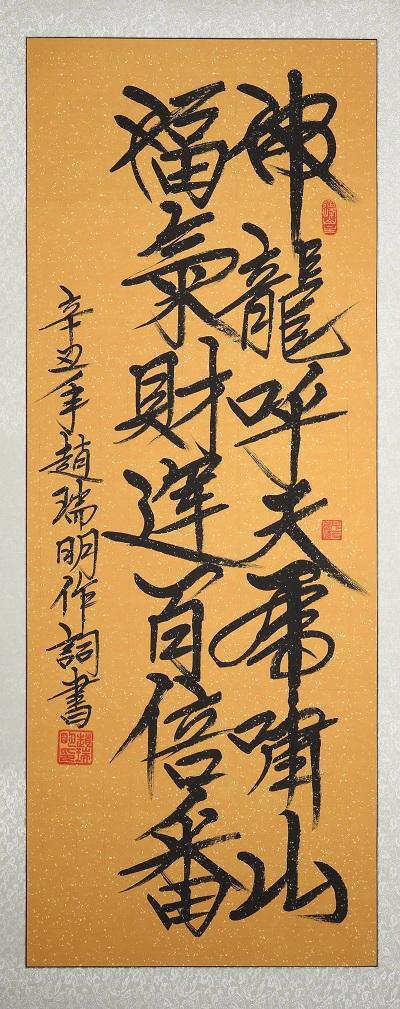 神龍呼天虎嘯山
福氣財運百倍番
辛丑年趙瑞明作詞書